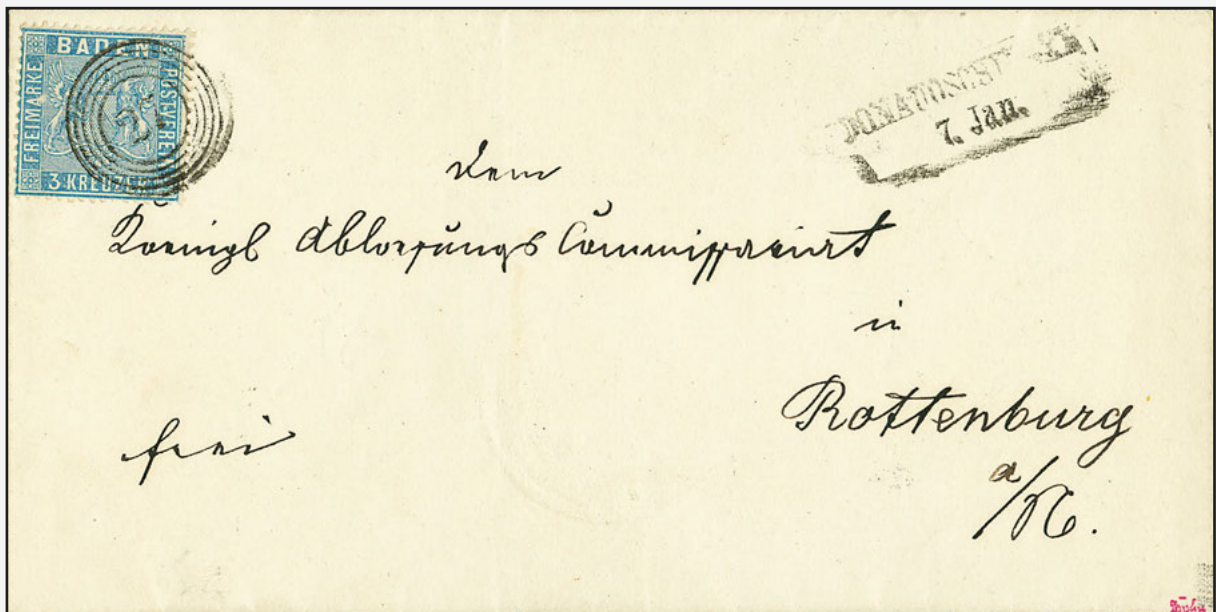 BADEN
FREIMARKE
POSTVEREIN
3 KREUZER
7. Jan.
Dem
Koenigl Abloesungs Commissariat
in
Rottenburg
a/N.
frei